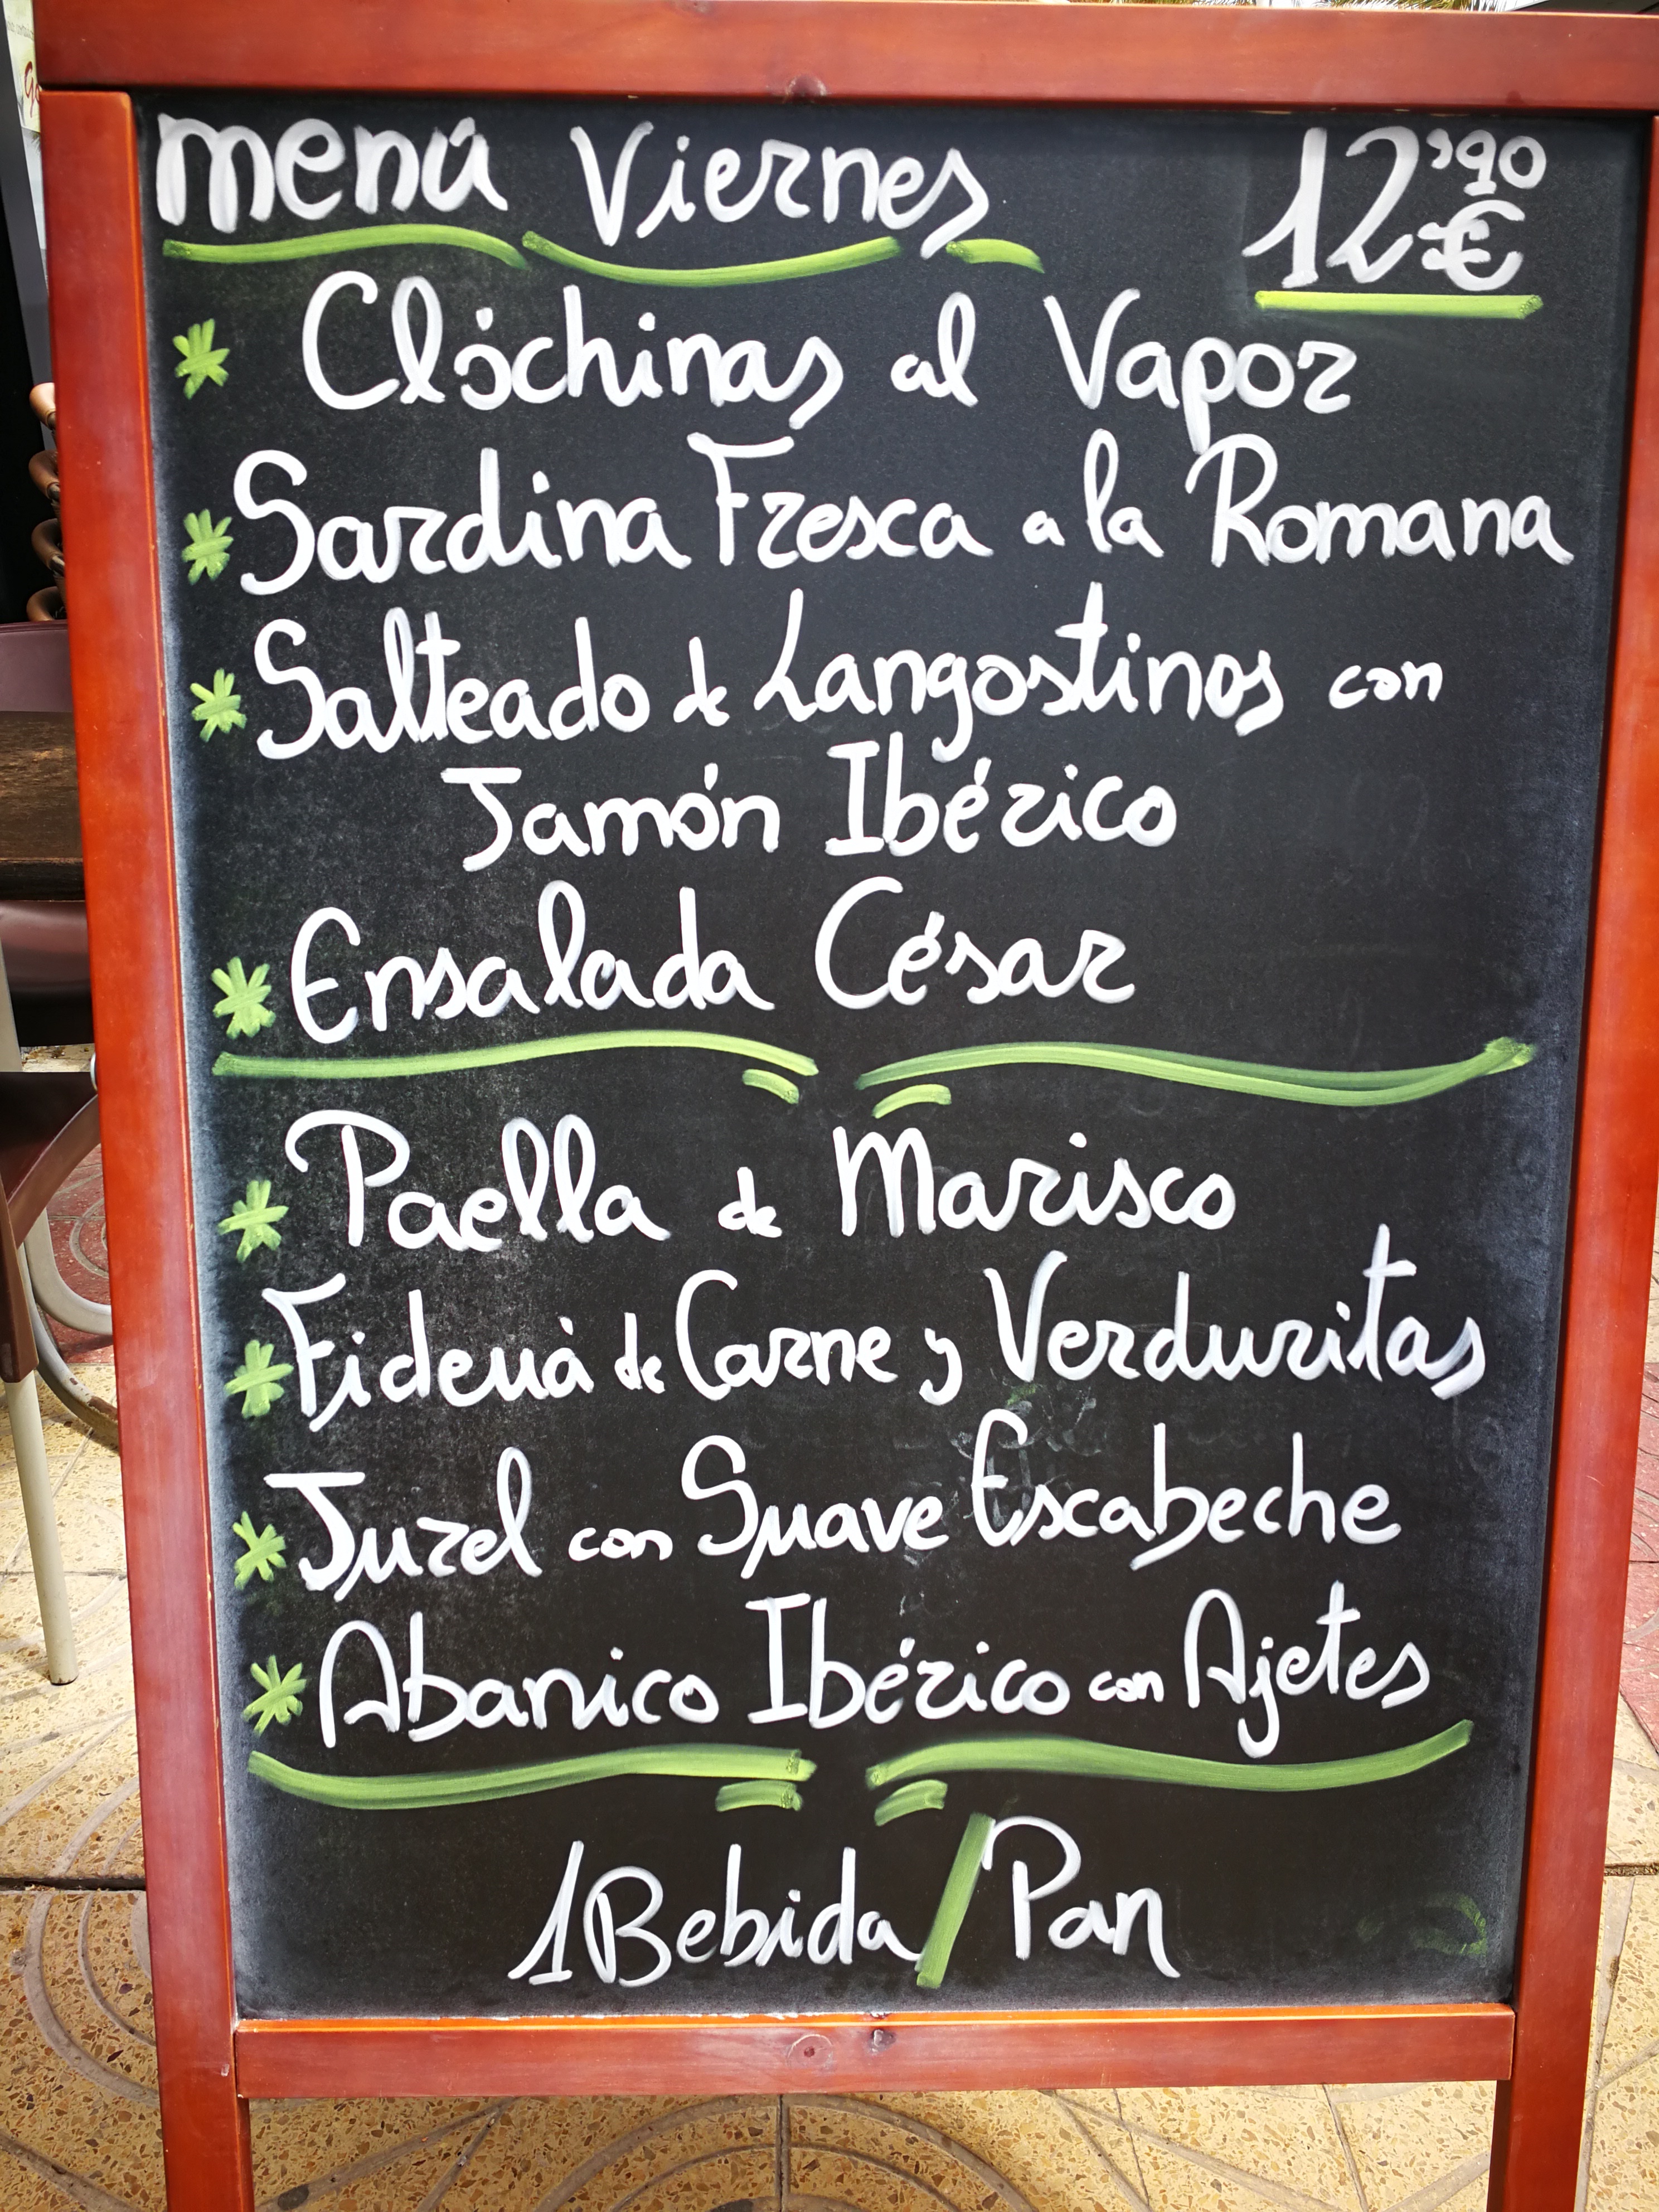 menú Viernes 12'90 €
* Clóchinas al Vapor
* Sardina Fresca a la Romana
* Salteado de Langostinos con
Jamón Ibérico
* Ensalada César
* Paella de Marisco
* Fideuà de Carne y Verduritas
* Jurel con Suave Escabeche
* Abanico Ibérico con Ajetes
1 Bebida / Pan